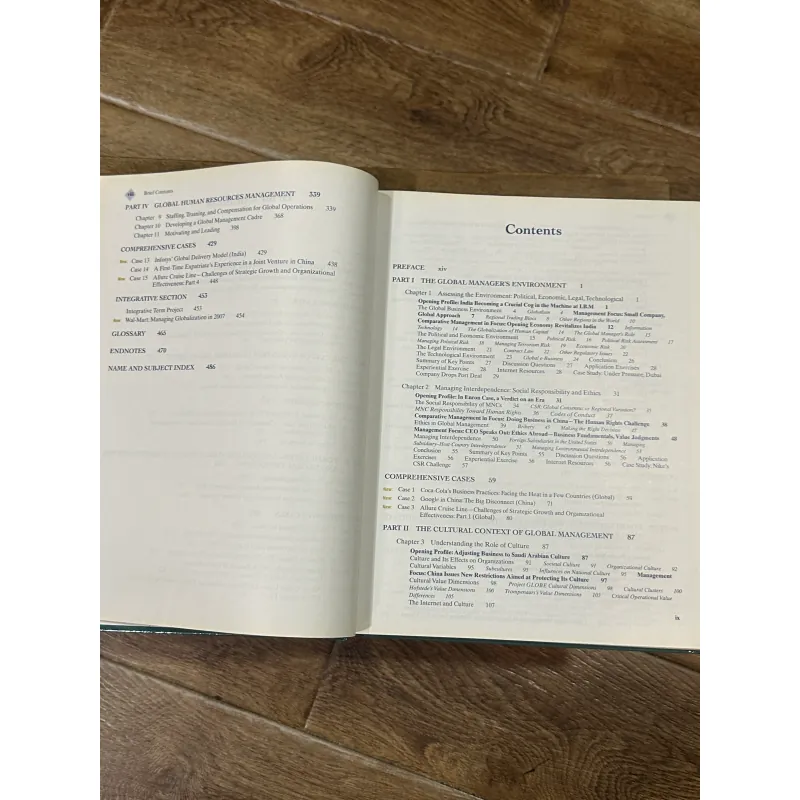 Brief Contents
PART IV GLOBAL HUMAN RESOURCES MANAGEMENT 339
Chapter 9 Staffing, Training, and Compensation for Global Operations 339
Chapter 10 Developing a Global Management Cadre 368
Chapter 11 Motivating and Leading 398
COMPREHENSIVE CASES 429
New Case 13 Infosys' Global Delivery Model (India) 429
Case 14 A First-Time Expatriate's Experience in a Joint Venture in China 438
New Case 15 Allure Cruise Line—Challenges of Strategic Growth and Organizational
Effectiveness: Part 4 448
INTEGRATIVE SECTION 453
Integrative Term Project 453
New Wal-Mart: Managing Globalization in 2007 454
GLOSSARY 463
ENDNOTES 470
NAME AND SUBJECT INDEX 486
Contents
PREFACE xiv
PART I THE GLOBAL MANAGER'S ENVIRONMENT 1
Chapter 1 Assessing the Environment: Political, Economic, Legal, Technological 1
Opening Profile: India Becoming a Crucial Cog in the Machine at I.B.M 1
The Global Business Environment 4 Globalism 4 Management Focus: Small Company,
Global Approach 7 Regional Trading Blocs 8 Other Regions in the World 10
Comparative Management in Focus: Opening Economy Revitalizes India 12 Information
Technology 14 The Globalization of Human Capital 14 The Global Manager's Role 15
The Political and Economic Environment 15 Political Risk 16 Political Risk Assessment 17
Managing Political Risk 18 Managing Terrorism Risk 19 Economic Risk 20
The Legal Environment 21 Contract Law 22 Other Regulatory Issues 22
The Technological Environment 23 Global e-Business 24 Conclusion 25
Summary of Key Points 27 Discussion Questions 27 Application Exercises 28
Experiential Exercise 28 Internet Resources 28 Case Study: Under Pressure, Dubai
Company Drops Port Deal 29
Chapter 2 Managing Interdependence: Social Responsibility and Ethics 31
Opening Profile: In Enron Case, a Verdict on an Era 31
The Social Responsibility of MNCs 34 CSR: Global Consensus or Regional Variation? 35
MNC Responsibility Toward Human Rights 36 Codes of Conduct 37
Comparative Management in Focus: Doing Business in China—The Human Rights Challenge 38
Ethics in Global Management 39 Bribery 45 Making the Right Decision 47
Management Focus: CEO Speaks Out: Ethics Abroad—Business Fundamentals, Value Judgments 48
Managing Interdependence 50 Foreign Subsidiaries in the United States 50 Managing
Subsidiary–Host Country Interdependence 51 Managing Environmental Interdependence 53
Conclusion 55 Summary of Key Points 55 Discussion Questions 56 Application
Exercises 56 Experiential Exercise 56 Internet Resources 56 Case Study: Nike's
CSR Challenge 57
COMPREHENSIVE CASES 59
New Case 1 Coca-Cola's Business Practices: Facing the Heat in a Few Countries (Global) 59
New Case 2 Google in China: The Big Disconnect (China) 71
New Case 3 Allure Cruise Line—Challenges of Strategic Growth and Organizational
Effectiveness: Part 1 (Global) 80
PART II THE CULTURAL CONTEXT OF GLOBAL MANAGEMENT 87
Chapter 3 Understanding the Role of Culture 87
Opening Profile: Adjusting Business to Saudi Arabian Culture 87
Culture and Its Effects on Organizations 91 Societal Culture 91 Organizational Culture 92
Cultural Variables 93 Subcultures 95 Influences on National Culture 95 Management
Focus: China Issues New Restrictions Aimed at Protecting Its Culture 97
Cultural Value Dimensions 98 Project GLOBE Cultural Dimensions 98 Cultural Clusters 100
Hofstede's Value Dimensions 100 Trompenaars's Value Dimensions 103 Critical Operational Value
Differences 105
The Internet and Culture 107
ix